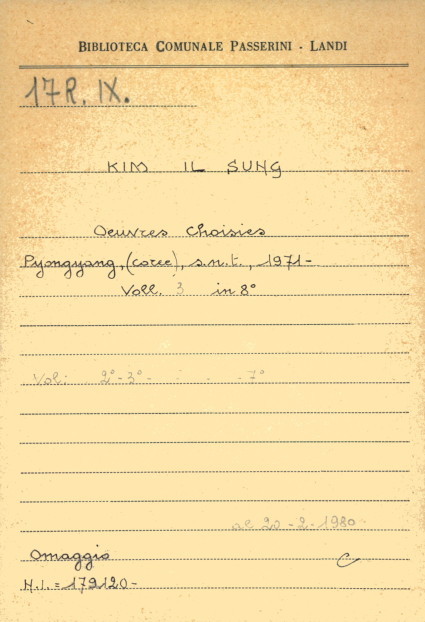 BIBLIOTECA COMUNALE PASSERINI - LANDI
17R. IX.
KIM IL SUNG
Oeuvres Choisies
Pyongyang, (Corée), s.n.t., 1971-
Voll. 3 in 8°
Vol: 2°-3°- - 7°
al 20-2-1980
Omaggio C
N.I. = 179120-